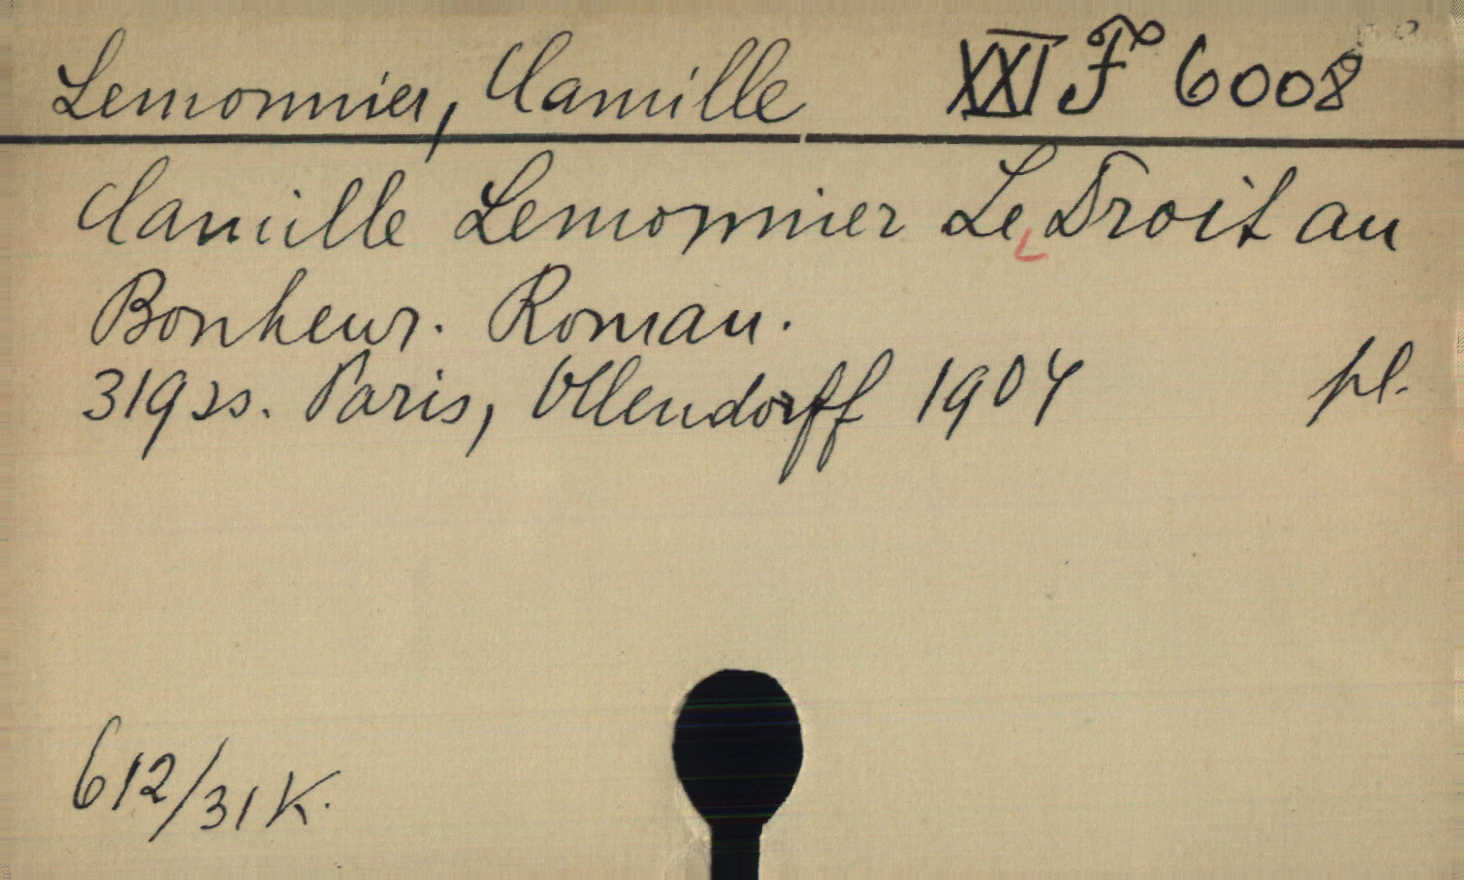 Lemonnier, Camille XXI F 6008
Camille Lemonnier Le Droit au
Bonheur. Roman.
319 ss. Paris, Ollendorff 1904 pl.
612/31 K.